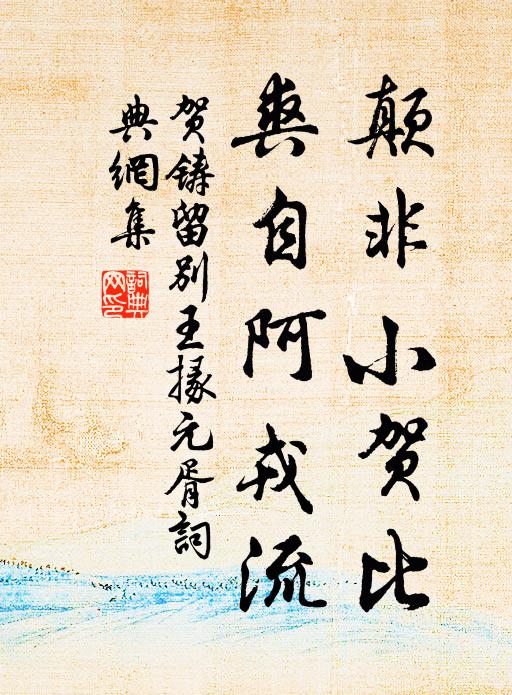 颠非小贺比
爽自阿戎流
贺铸留别王掾元胥詞
典網集
詞典网印